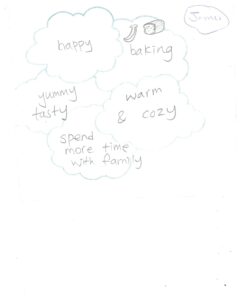 happy
baking
yummy
tasty
warm
& cozy
spend
more time
with family